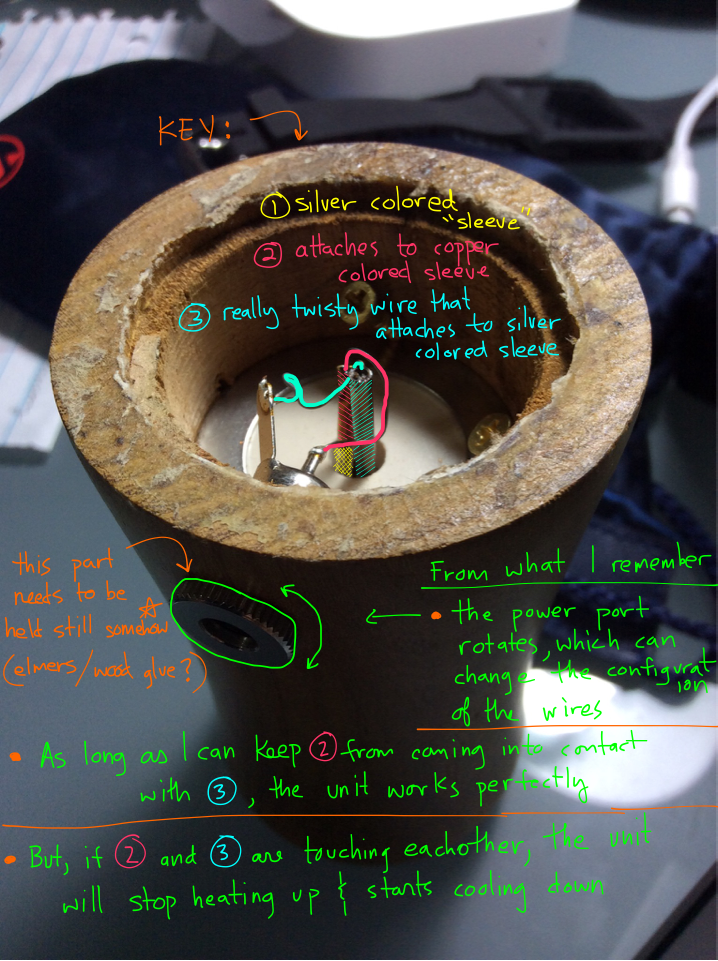 KEY:
① silver colored
"sleeve"
② attaches to copper
colored sleeve
③ really twisty wire that
attaches to silver
colored sleeve
this part
needs to be
held still somehow
(elmers/wood glue?)
From what I remember
• the power port
rotates, which can
change the configurat
ion
of the wires
• As long as I can keep ② from coming into contact
with ③, the unit works perfectly
• But, if ② and ③ are touching eachother, the unit
will stop heating up & starts cooling down